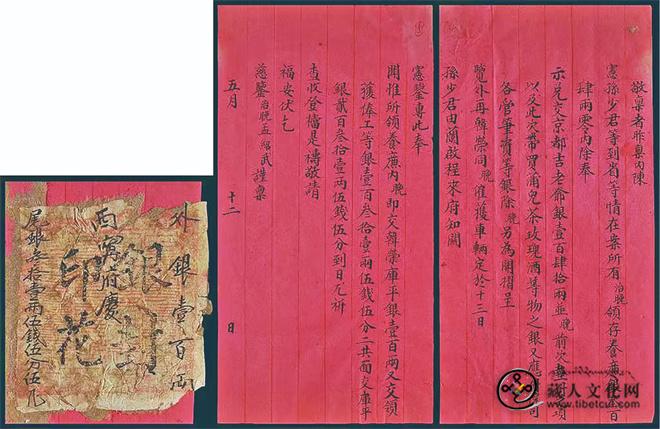 敬稟者昨稟內陳
憲孫少君等到省等情在案所有治晚領存養廉銀百
肆兩零內除奉
示兌交京都吉老爺銀壹百肆拾兩並晚前次墊項
以及此次帶買蒲兒茶玫瑰酒等物之銀又應司
各管筆資等銀除晚另為開摺呈
覽外再韓榮同晚催獲車輛定於十三日
孫少君由蘭啟程來府知關
憲鑒專此奉
聞惟所領養廉內晚即交韓榮庫平銀壹百兩又交領
獲俸工等銀壹百叁拾壹兩伍錢伍分二共面交庫平
銀貳百叁拾壹兩伍錢伍分到日尤祈
查收登檔是禱敬請
福安伏乞
慈鑒治晚孟紹武謹稟
五月十二日
外銀壹百兩
西寧府慶
銀封
印花
尾銀叁拾壹兩伍錢伍分伍凡
藏人文化网
www.tibetcul.com